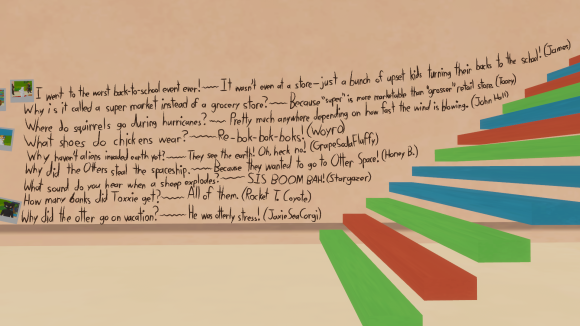 I went to the worst back-to-school event ever! ~~~ It wasn't even at a store-just a bunch of upset kids turning their backs to the school! (James)
Why is it called a super market instead of a grocery store? ~~~ Because "super" is more marketable than "grosser" retail store. (Toony)
Where do squirrels go during hurricanes? ~~~ Pretty much anywhere depending on how fast the wind is blowing. (John Holl)
What shoes do chickens wear? ~~~ Re-bok-bok-boks! (Woyro)
Why haven't aliens invaded earth yet? ~~~ They see the earth! Oh, heck no! (GrapeSodaFluffy)
Why did the Otters steal the spaceship. ~~~ Because they wanted to go to Otter Space! (Honey B.)
What sound do you hear when a sheep explodes? ~~~ SIS BOOM BAH! (Stargazer)
How many banks did Toxxie get? ~~~ All of them. (Rocket T. Coyote)
Why did the otter go on vacation? ~~~ He was otterly stress! (JaxieSeaCorgi)